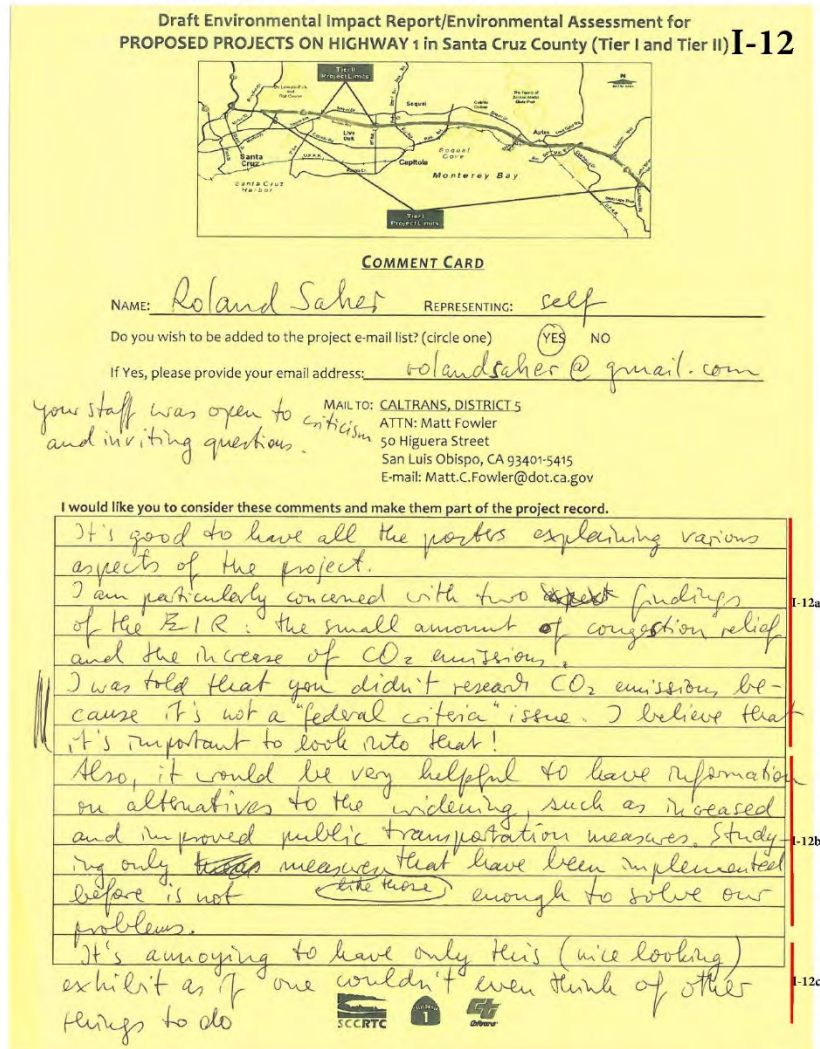 Draft Environmental Impact Report/Environmental Assessment for
PROPOSED PROJECTS ON HIGHWAY 1 in Santa Cruz County (Tier I and Tier II)
I-12
Tier II
Project Limits
Soquel
Live
Oak
Aptos
Santa
Cruz
Capitola
Soquel
Cove
Monterey Bay
Santa Cruz
Harbor
Tier I
Project Limits
COMMENT CARD
NAME: Roland Saher REPRESENTING: self
Do you wish to be added to the project e-mail list? (circle one) YES NO
If Yes, please provide your email address: rolandsaher@gmail.com
your staff was open to criticism
and inviting questions.
MAIL TO: CALTRANS, DISTRICT 5
ATTN: Matt Fowler
50 Higuera Street
San Luis Obispo, CA 93401-5415
E-mail: Matt.C.Fowler@dot.ca.gov
I would like you to consider these comments and make them part of the project record.
It's good to have all the posters explaining various
aspects of the project.
I am particularly concerned with two findings
of the EIR: the small amount of congestion relief
and the increase of CO2 emissions.
I-12a
I was told that you didn't research CO2 emissions be-
cause it's not a "federal criteria" issue. I believe that
it's important to look into that!
Also, it would be very helpful to have information
on alternatives to the widening, such as increased
and improved public transportation measures. Study-
I-12b
ing only measures that have been implemented
before is not (like those) enough to solve our
problems.
It's annoying to have only this (nice looking)
exhibit as if one couldn't even think of other
I-12c
things to do
SCCRTC
1
Caltrans